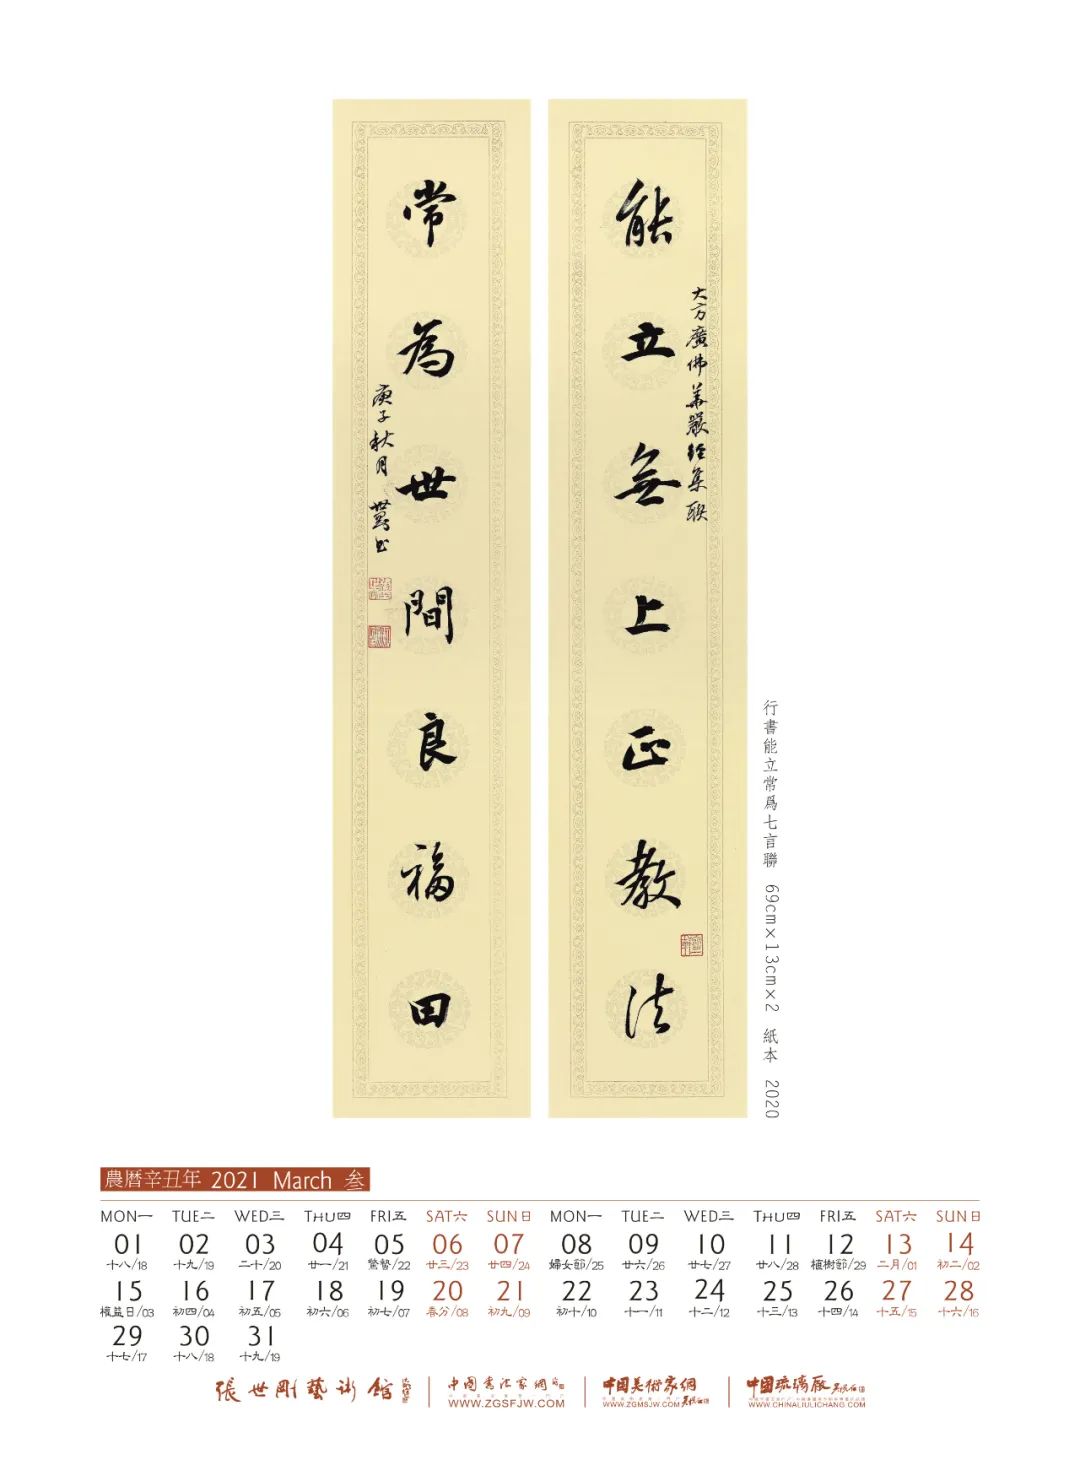 能立無上正教法
大方廣佛華嚴經集聯
常為世間良福田
庚子秋月
行書能立常爲七言聯 69cm×13cm×2 紙本 2020
農曆辛丑年 2021 March 叁
MON一 TUE二 WED三 THU四 FRI五 SAT六 SUN日 MON一 TUE二 WED三 THU四 FRI五 SAT六 SUN日
01 02 03 04 05 06 07 08 09 10 11 12 13 14
十八/18 十九/19 二十/20 廿一/21 驚蟄/22 廿三/23 廿四/24 婦女節/25 廿六/26 廿七/27 廿八/28 植樹節/29 二月/01 初二/02
15 16 17 18 19 20 21 22 23 24 25 26 27 28
權益日/03 初四/04 初五/05 初六/06 初七/07 春分/08 初九/09 初十/10 十一/11 十二/12 十三/13 十四/14 十五/15 十六/16
29 30 31
十七/17 十八/18 十九/19
張世剛藝術館
中国書法家網
WWW.ZGSFJW.COM
中国美術家網
WWW.ZGMSJW.COM
中国琉璃厰
WWW.CHINALIULICHANG.COM